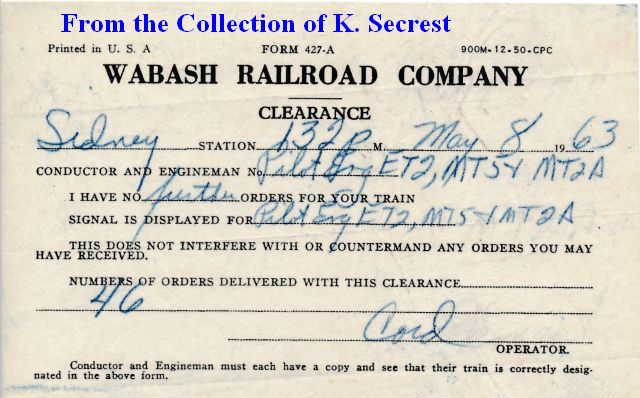 From the Collection of K. Secrest
Printed in U. S. A FORM 427-A 900M-12-50-CPC
WABASH RAILROAD COMPANY
CLEARANCE
Sidney STATION 132 P M. May 8 1963
CONDUCTOR AND ENGINEMAN No. Pilot Eng ET2, MT5Y MT2A
I HAVE NO further ORDERS FOR YOUR TRAIN
SIGNAL IS DISPLAYED FOR Pilot Eng ET2, MT5Y MT2A
THIS DOES NOT INTERFERE WITH OR COUNTERMAND ANY ORDERS YOU MAY
HAVE RECEIVED.
NUMBERS OF ORDERS DELIVERED WITH THIS CLEARANCE
46
Cord
OPERATOR.
Conductor and Engineman must each have a copy and see that their train is correctly desig-
nated in the above form.